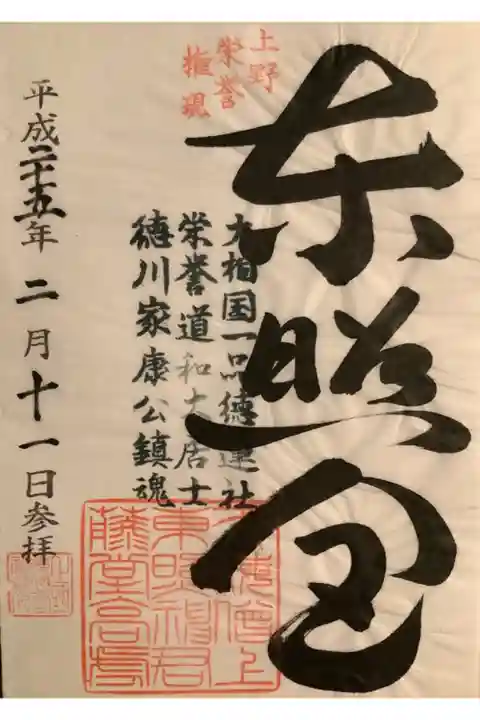 上野
栄誉
権現
東照宮
大相国一品徳蓮社
栄誉道和大居士
徳川家康公鎮魂
平成二十五年二月十一日参拝
東照神君